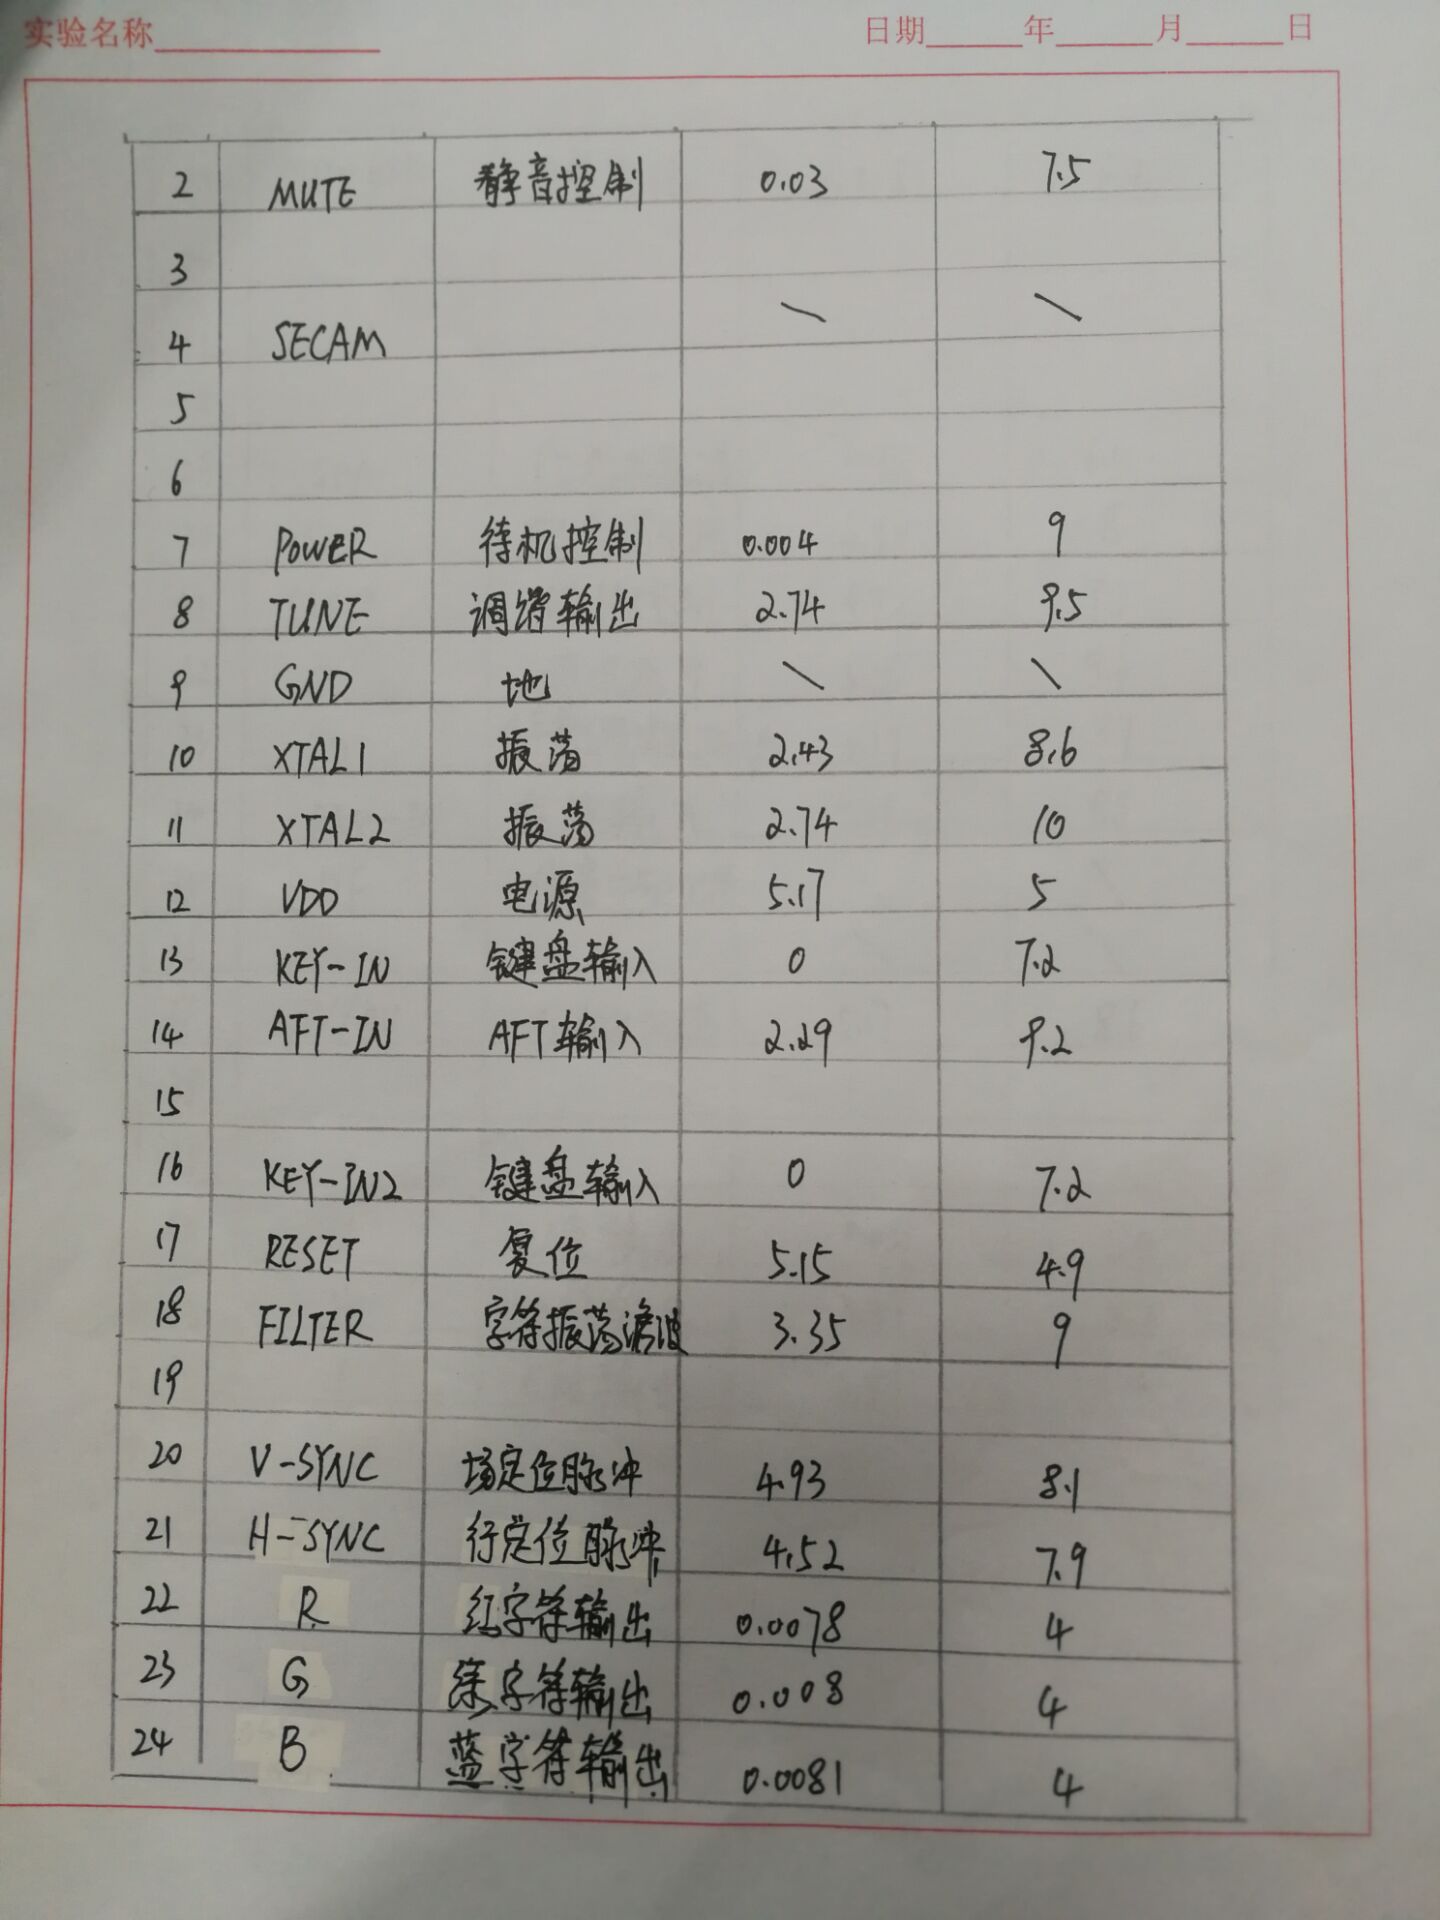 实验名称 日期 年 月 日
2 MUTE 静音控制 0.03 7.5
3
4 SECAM \ \
5
6
7 POWER 待机控制 0.004 9
8 TUNE 调谐输出 2.74 9.5
9 GND 地 \ \
10 XTAL1 振荡 2.43 8.6
11 XTAL2 振荡 2.74 10
12 VDD 电源 5.17 5
13 KEY-IN 键盘输入 0 7.2
14 AFT-IN AFT输入 2.29 9.2
15
16 KEY-IN2 键盘输入 0 7.2
17 RESET 复位 5.15 4.9
18 FILTER 字符振荡滤波 3.35 9
19
20 V-SYNC 场定位脉冲 4.93 8.1
21 H-SYNC 行定位脉冲 4.52 7.9
22 R 红字符输出 0.0078 4
23 G 绿字符输出 0.008 4
24 B 蓝字符输出 0.0081 4